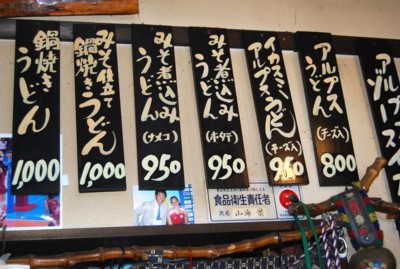 鍋焼き
うどん
1,000
みそ仕立て
鍋焼きうどん
1,000
みそ煮込み
うどん
(ナメコ)
950
みそ煮込み
うどん
(ホタテ)
950
イカスミ
アルプスうどん
(チーズ入)
950
アルプス
うどん
(チーズ入)
800
アルプス
食品衛生責任者
氏名